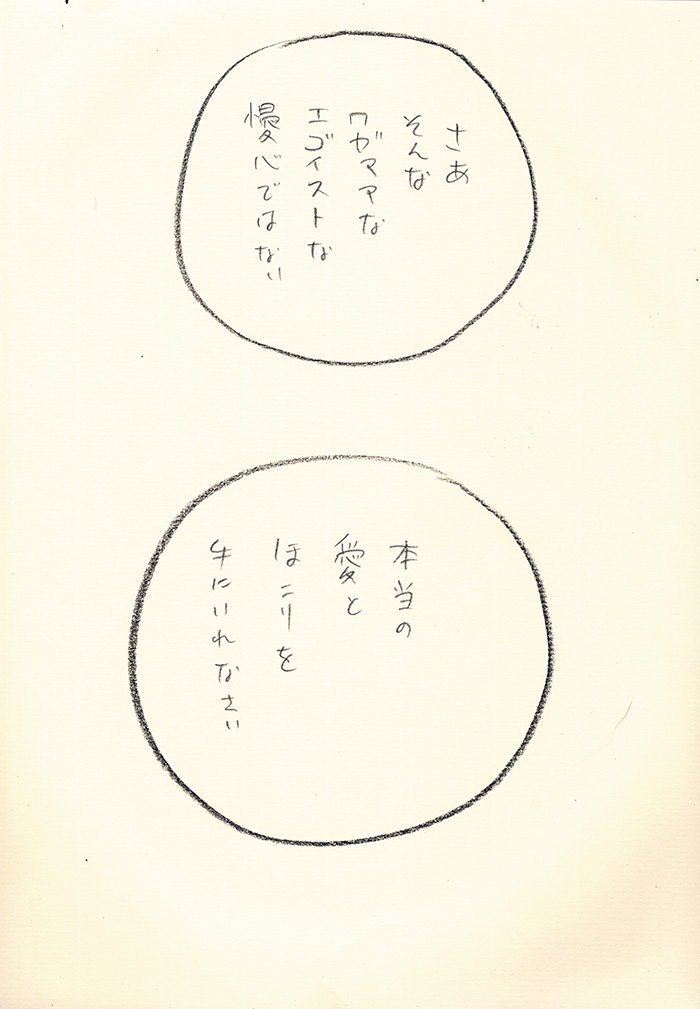 さあ
そんな
ワガママな
エゴイストな
慢心ではない
本当の
愛と
ほこりを
手にいれなさい